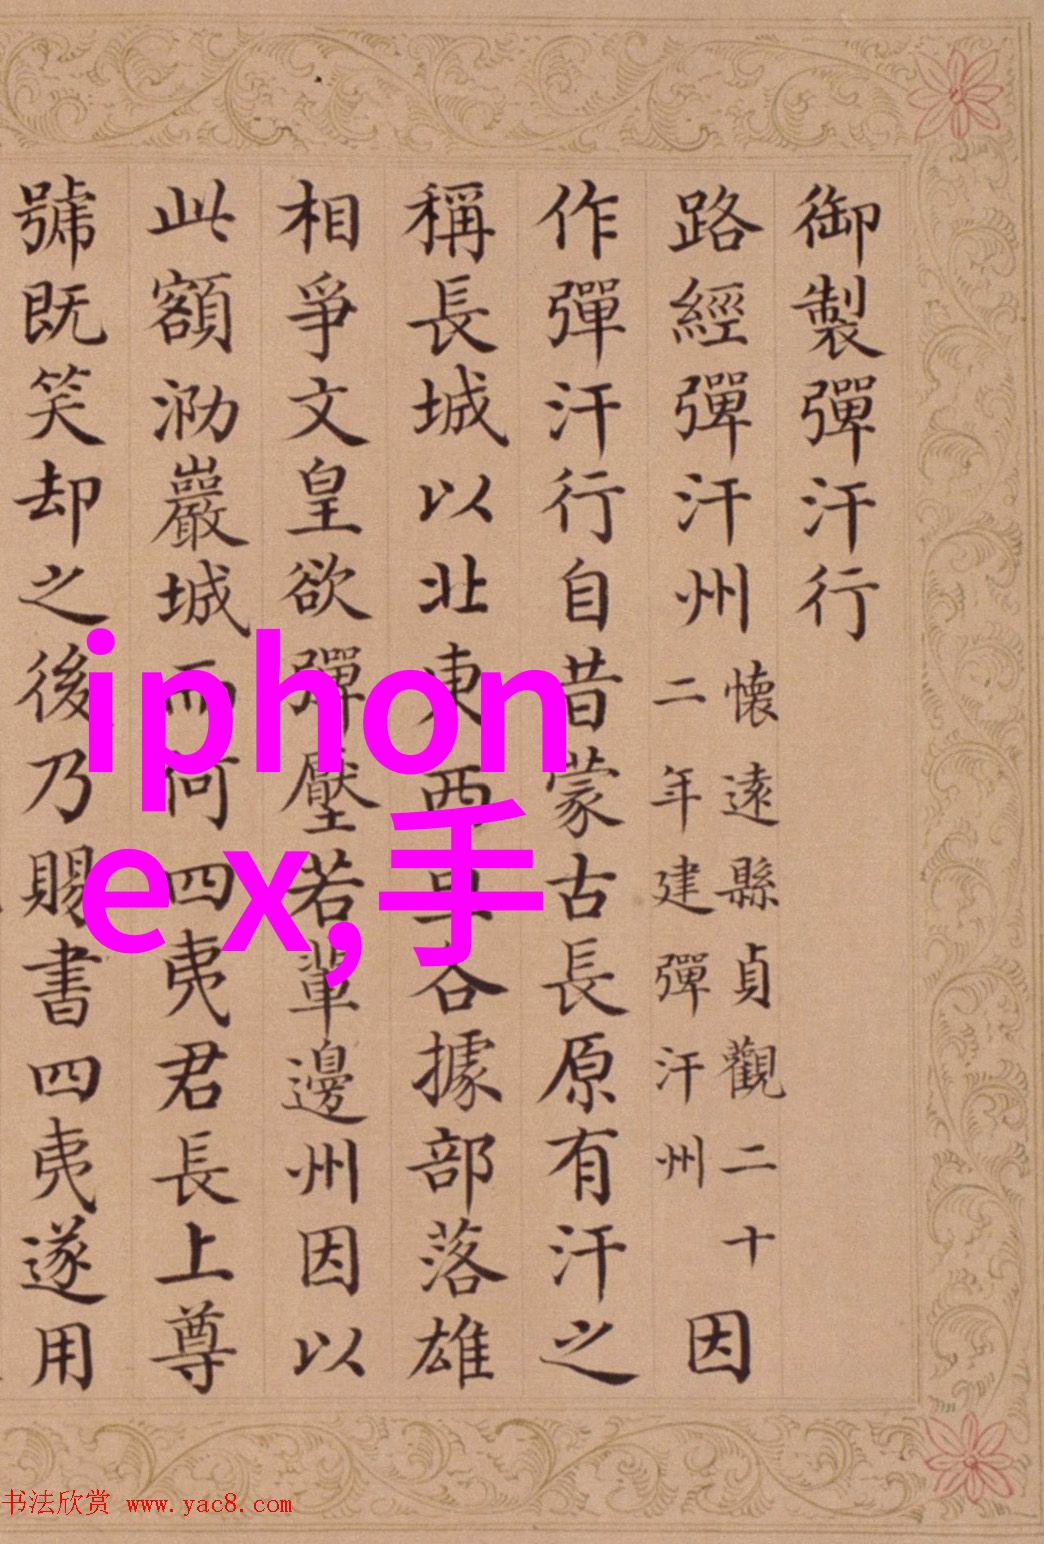 御製彈汗行
路經彈汗州
懷遠縣貞觀二十
二年建彈汗州
因
作彈汗行自昔蒙古長原有汗之
稱長城以北東西各據部落雄
相爭文皇欲彈壓若輩邊州因以
此額泐巖城而何四夷君長上尊
號既笑却之後乃賜書四夷遂用
iphon
e x,手
书法欣赏 www.yac8.com